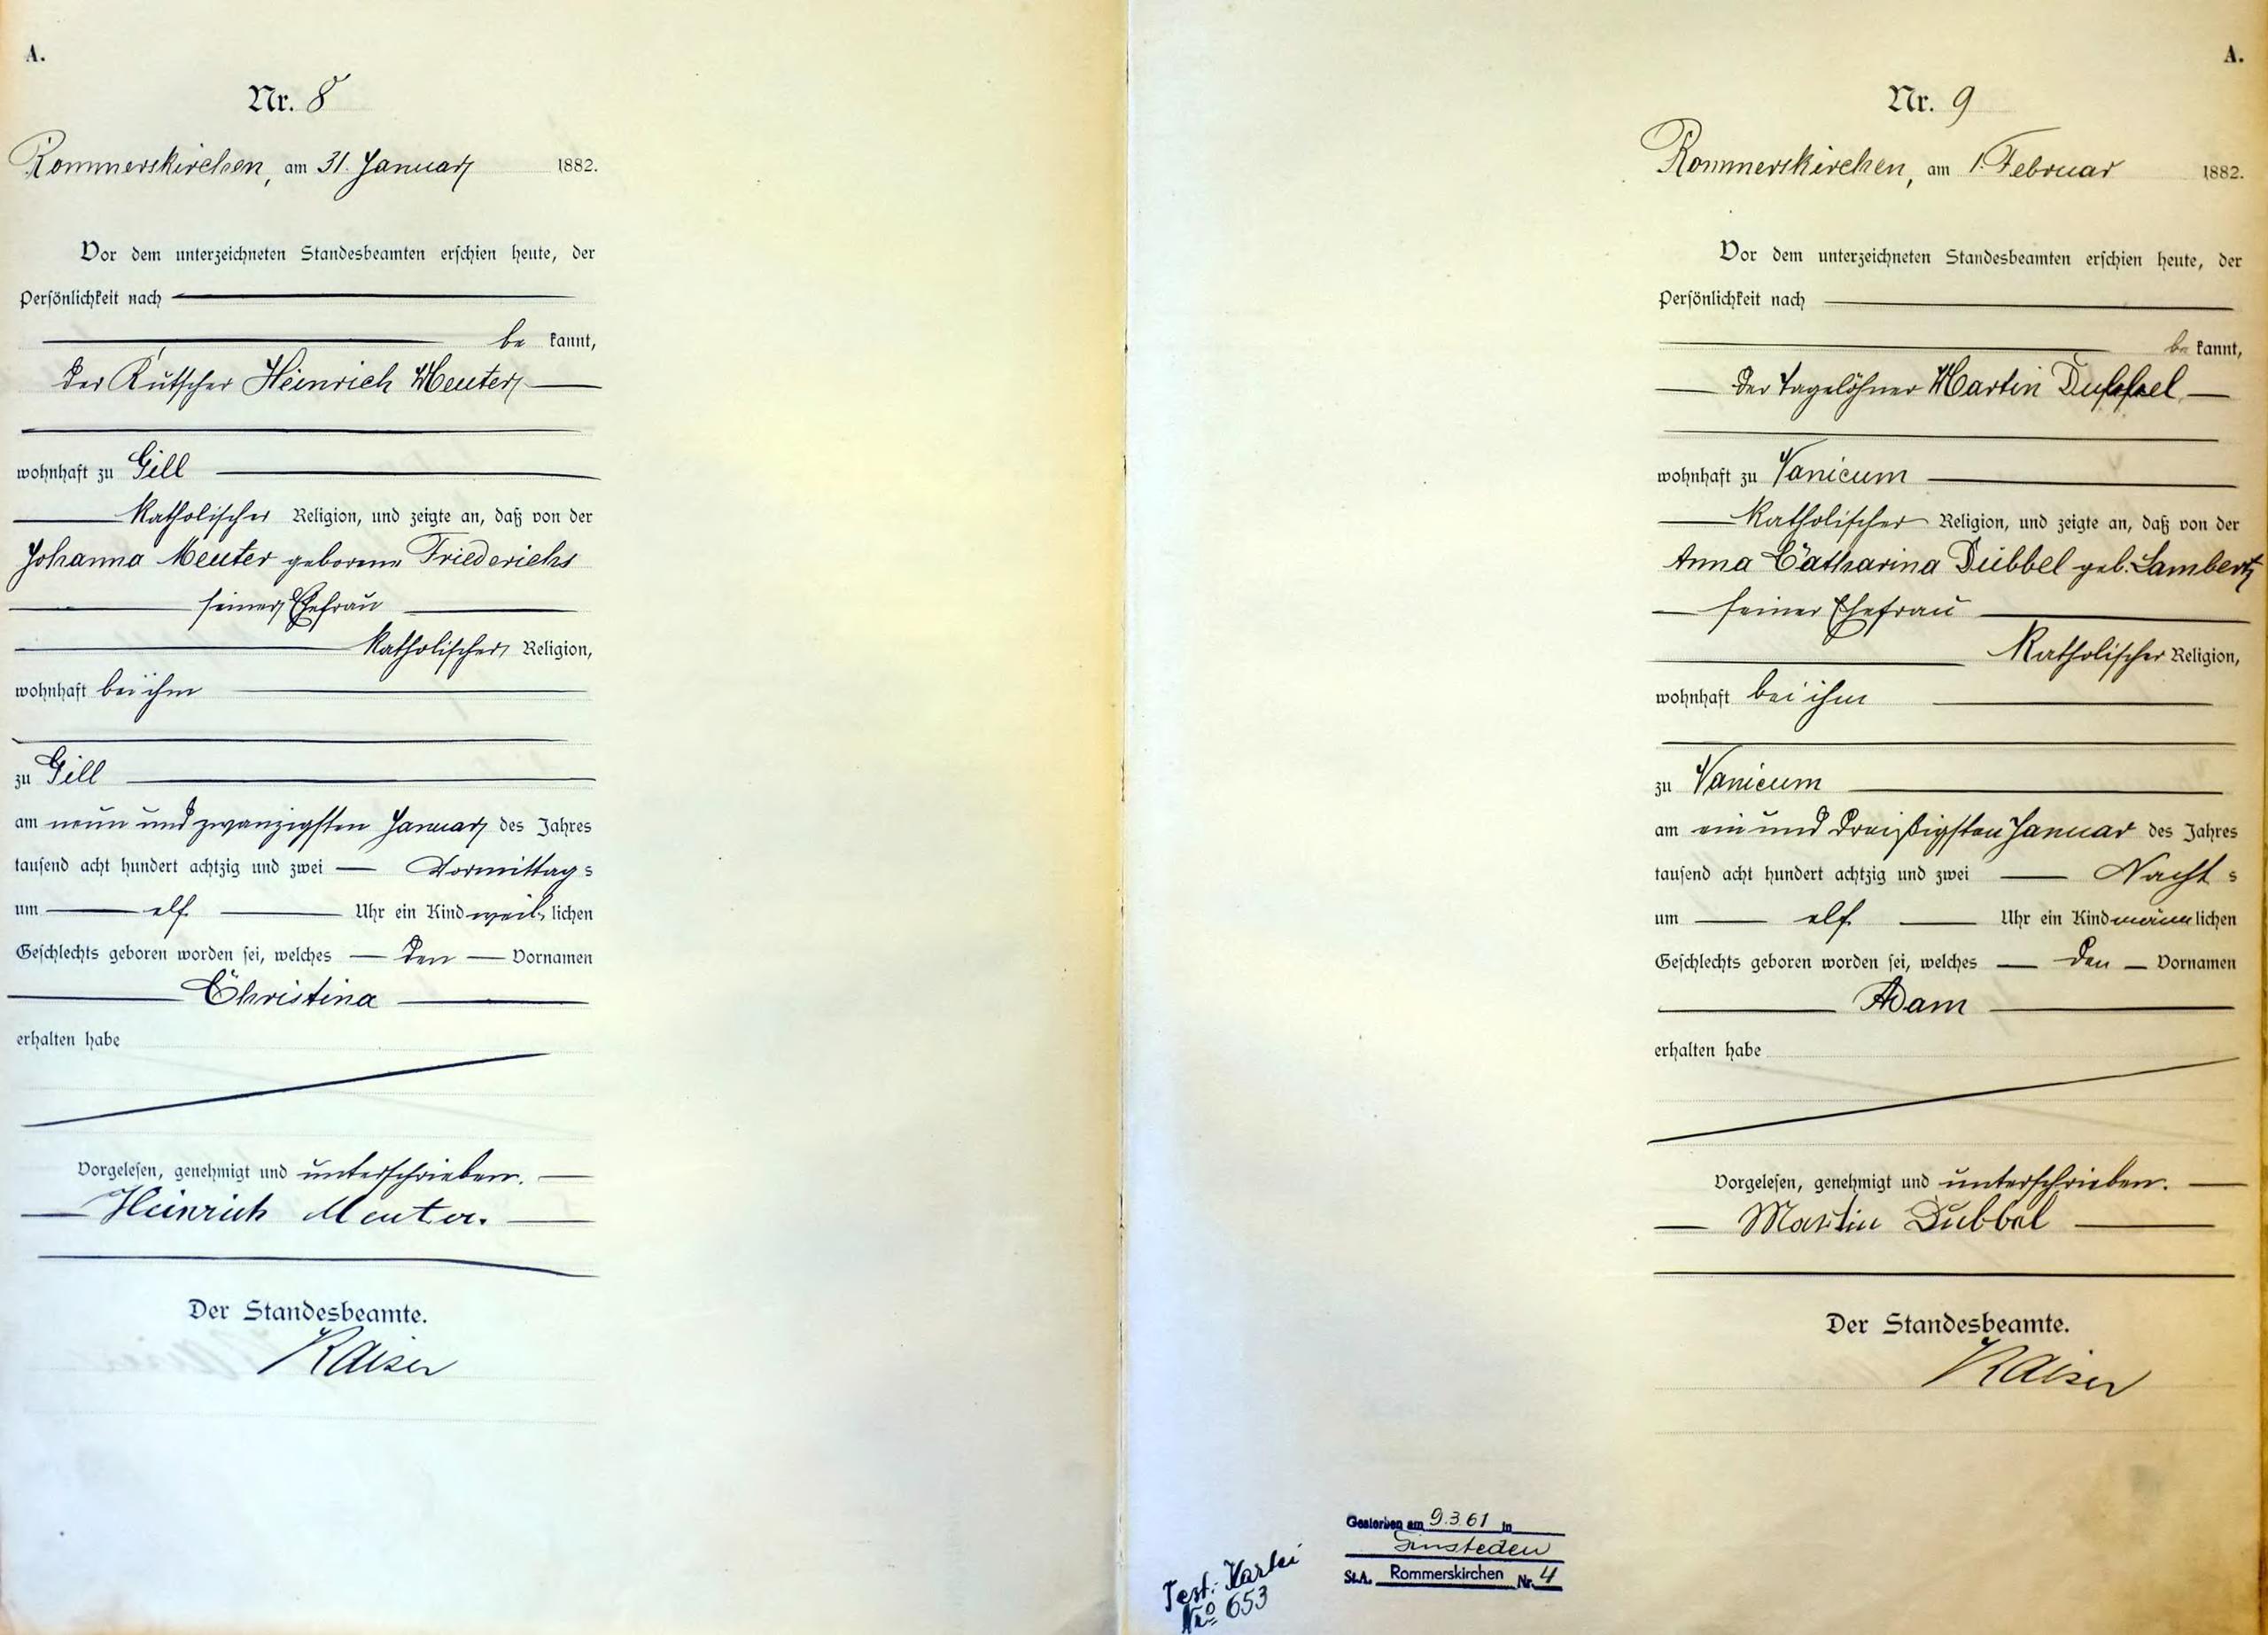 A.
Nr. 8
Rommerskirchen, am 31. Januar 1882.
Vor dem unterzeichneten Standesbeamten erschien heute, der
Persönlichkeit nach
be kannt,
der Kutscher Heinrich Meuter
wohnhaft zu Gill
katholischer Religion, und zeigte an, daß von der
Johanna Meuter geborene Friederichs
seiner Ehefrau
katholischer Religion,
wohnhaft bei ihm
zu Gill
am neun und zwanzigsten Januar des Jahres
tausend acht hundert achtzig und zwei Vormittags
um elf Uhr ein Kind weib lichen
Geschlechts geboren worden sei, welches den Vornamen
Christina
erhalten habe
Vorgelesen, genehmigt und unterschrieben.
Heinrich Meuter.
Der Standesbeamte.
Kaiser
A.
Nr. 9
Rommerskirchen, am 1. Februar 1882.
Vor dem unterzeichneten Standesbeamten erschien heute, der
Persönlichkeit nach
be kannt,
der Tagelöhner Martin
wohnhaft zu Vanicum
katholischer Religion, und zeigte an, daß von der
Anna Catharina Dübbel geb. Lambertz
seiner Ehefrau
katholischer Religion,
wohnhaft bei ihm
zu Vanicum
am ein und dreißigsten Januar des Jahres
tausend acht hundert achtzig und zwei Nachts
um elf Uhr ein Kind männlichen
Geschlechts geboren worden sei, welches den Vornamen
Adam
erhalten habe
Vorgelesen, genehmigt und unterschrieben.
Martin Dübbel
Der Standesbeamte.
Kaiser
Gestorben am 9.3.61 in
Sinsteden
St.A. Rommerskirchen Nr. 4
Test. Kartei
No 653